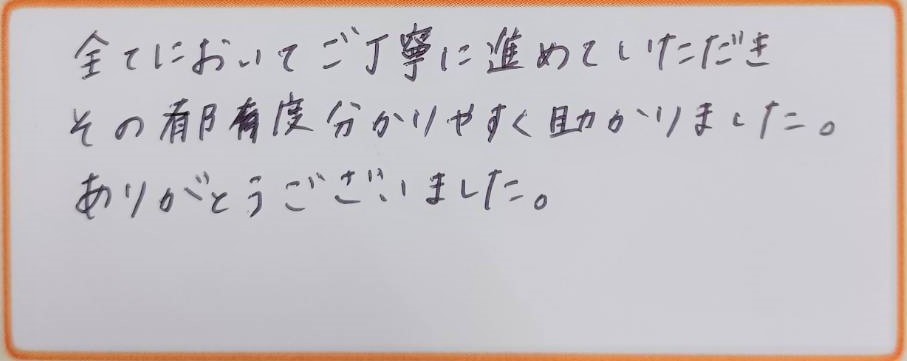 全てにおいてご丁寧に進めていただき
その都度分かりやすく助かりました。
ありがとうございました。